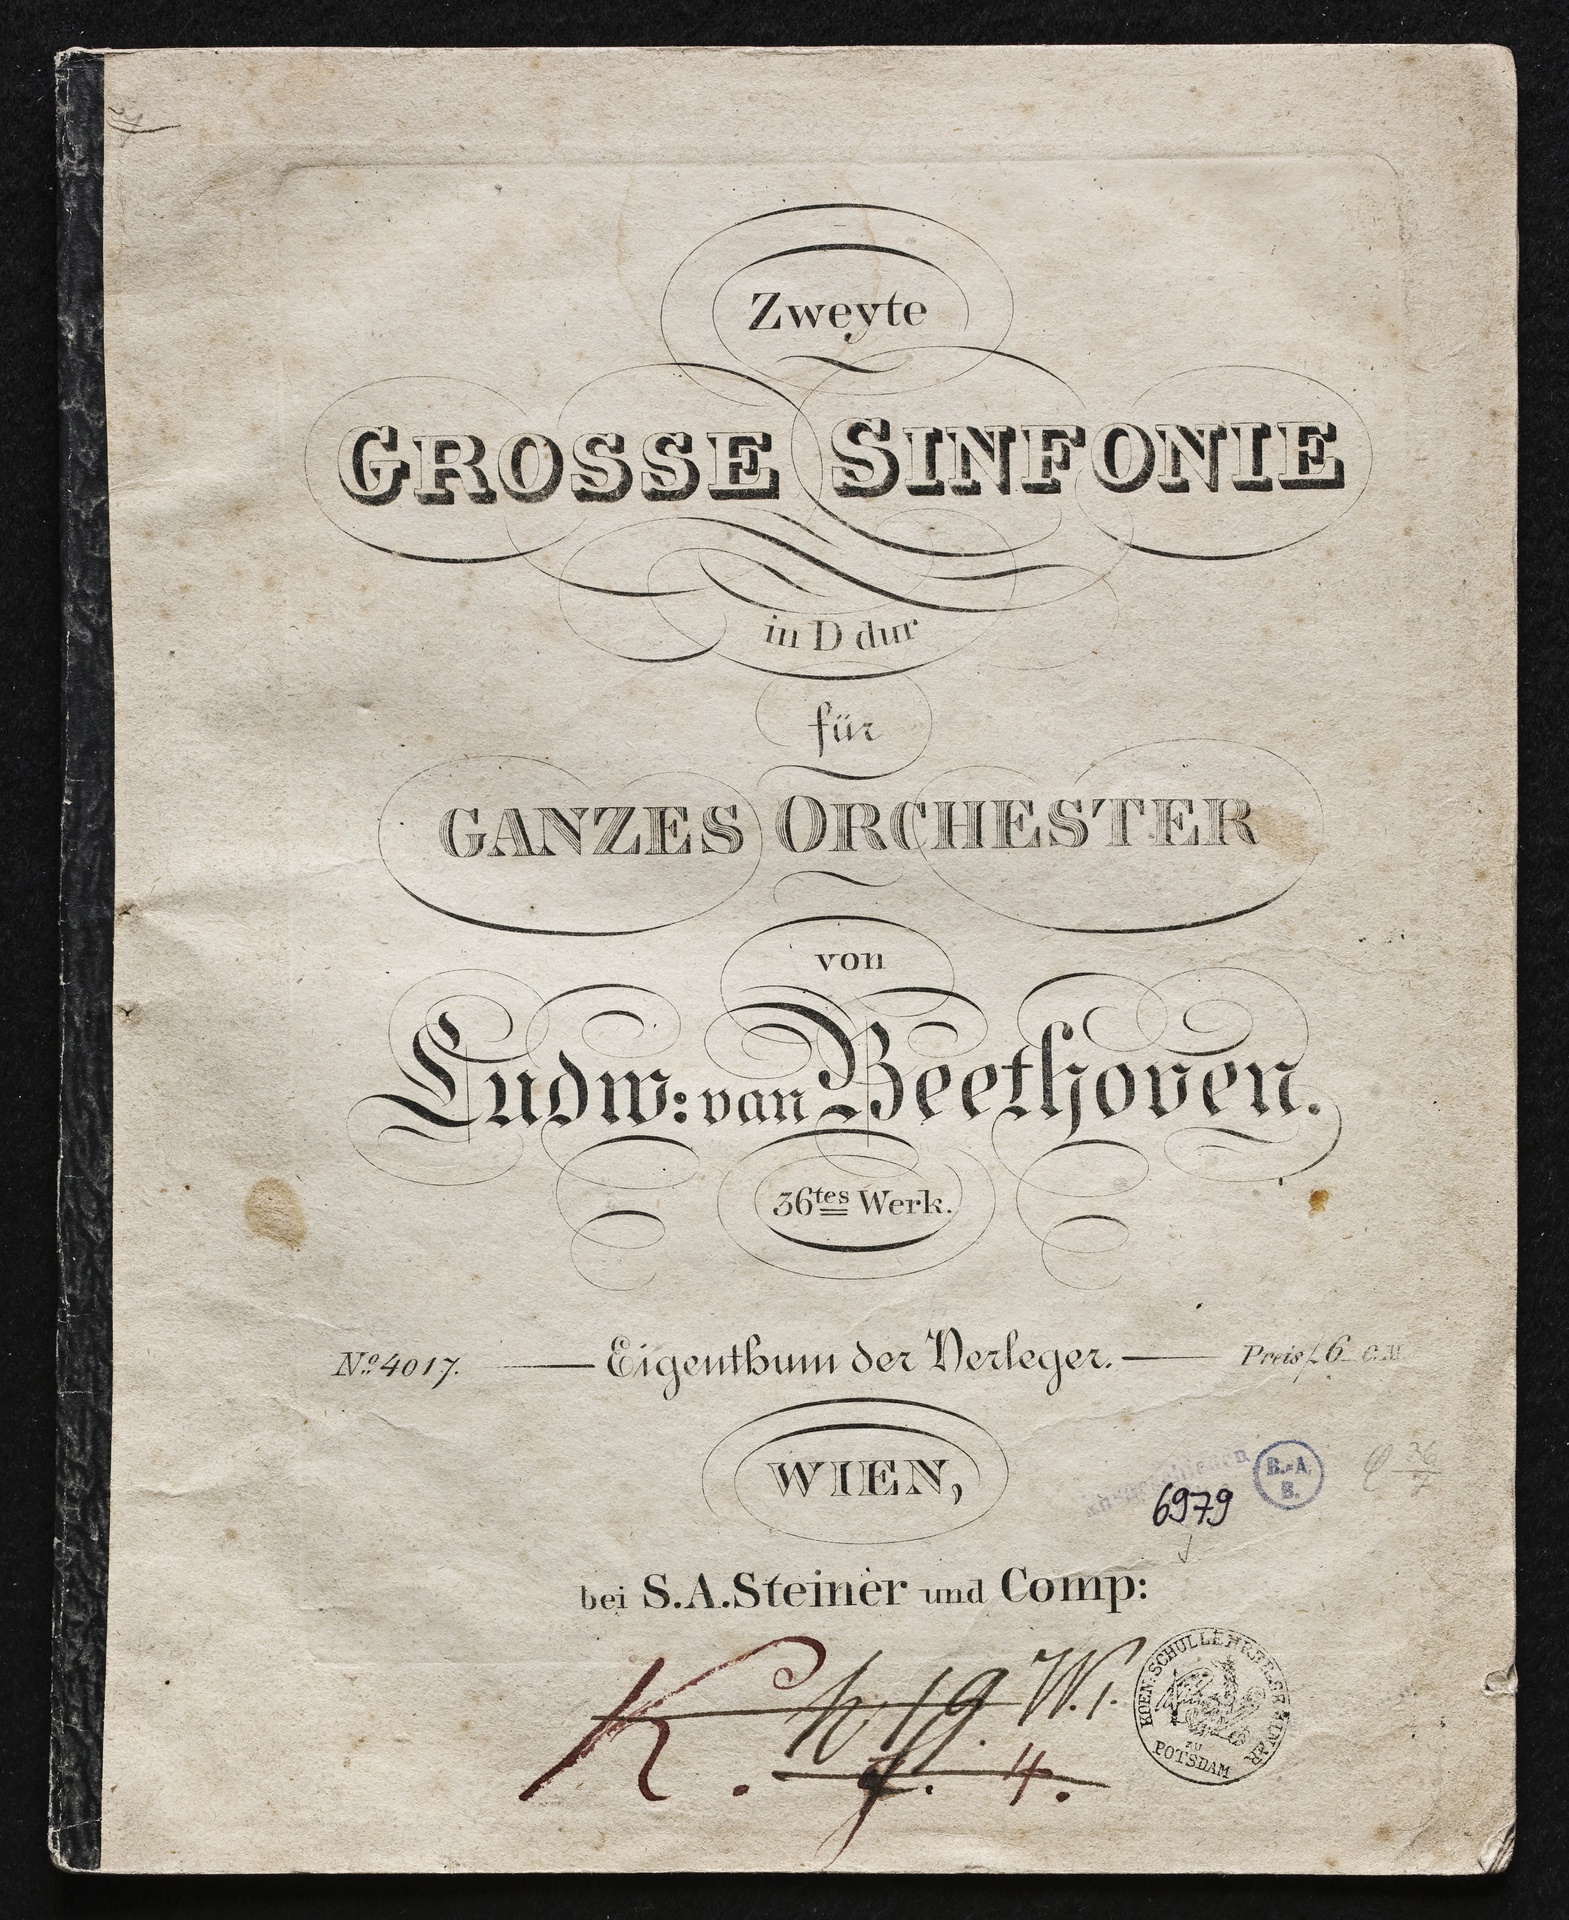 Zweyte
GROSSE SINFONIE
in D dur
für
GANZES ORCHESTER
von
Ludw: van Beethoven.
36tes Werk.
No. 4017. Eigenthum der Verleger. Preis f. 6 _ C.M
WIEN,
B.-A.
B.
36
7
6979
bei S.A. Steiner und Comp:
W. 1.
K. 4.
KOEN: SCHULLEHRER-SEMINAR
ZU
POTSDAM